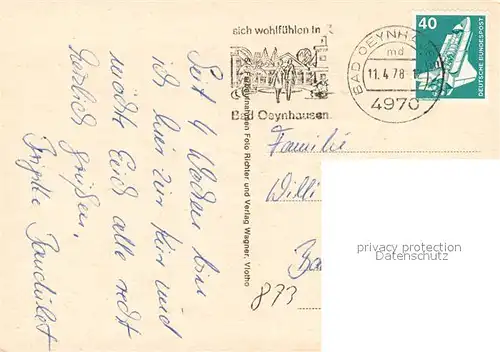 Seit 4 Wochen bin
ich hier zur Kur und
möchte Euch alle recht
herzlich grüßen.
Brigitte
sich wohlfühlen in
Bad Oeynhausen
BAD OEYNHA
md
11.4.78
4970
40
DEUTSCHE BUNDESPOST
Farbaufnahmen Foto Richter und Verlag Wagner, Vlotho
Familie
Willi
Ba
873
privacy protection
Datenschutz